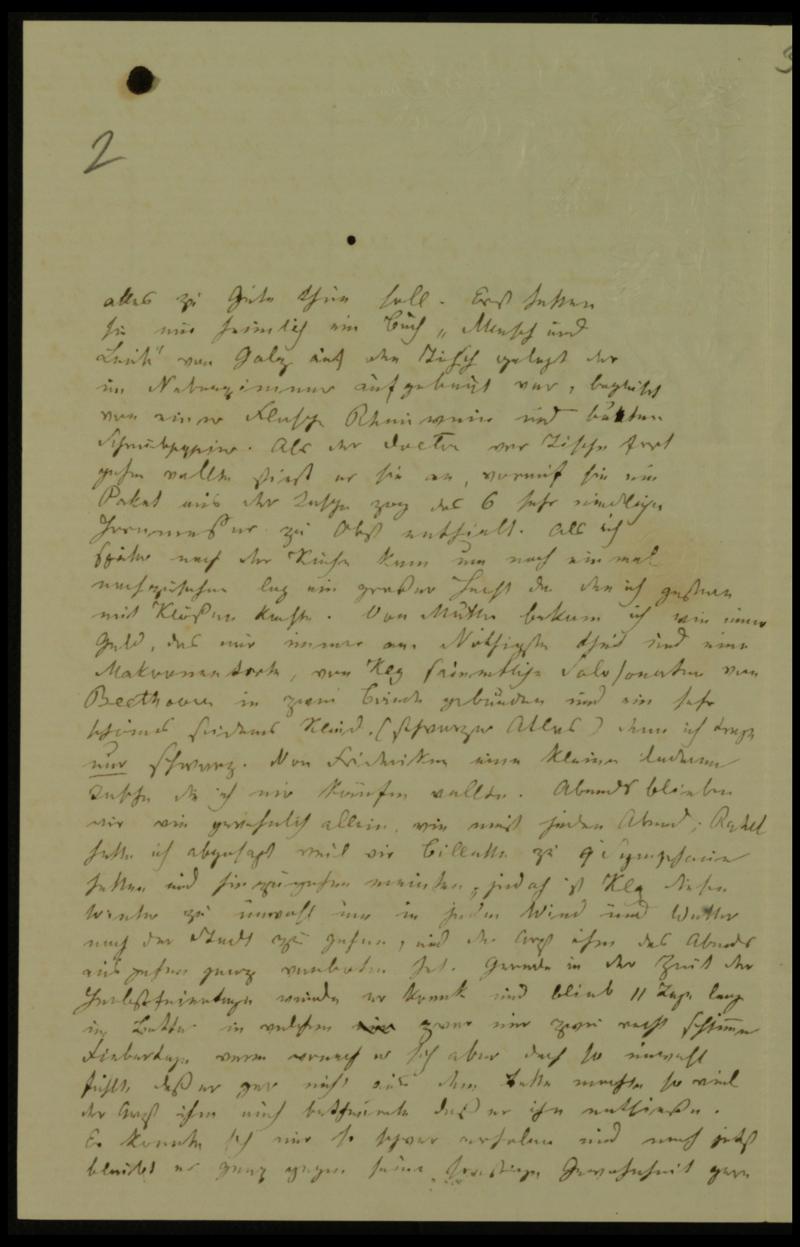 2
alles zu Gute thun soll. Erst hatten
sie mir heimlich ein Buch „Mensch und
Leute" von auf den Tisch gelegt der
im Nebenzimmer aufgebaut war, begleitet
von einer Flasche Rheinwein und
Als der Doctor vor Tische fort
gehen wollte stieß er sie an, worauf sie ein
Paket aus der Tasche zog das 6 sehr niedliche
zu Obst enthielt. Als ich
später nach der Küche kam um noch einmal
nachzusehen lag ein großer Hecht da den ich gestern
mit Klößen kochte. Von Mutter bekam ich wie immer
Geld, das mir immer am Nöthigsten thut und eine
Makronentorte, von sämmtliche Solo Sonaten von
Beethoven in zwei Bände gebunden und ein sehr
schönes seidenes Kleid. (schwarzer Atlas) denn ich trage
nur schwarz. Von Friederiken eine kleine lederne
Tasche die ich mir kaufen wollte. Abends blieben
wir wie gewöhnlich allein, wie meist jeden Abend;
hatte ich abgesagt weil wir Billette zu 9 Symphonie
hatten und hinzugehen meinten, jedoch ist diesen
Winter zu unwohl um in jedem Wind und Wetter
nach der Stadt zu gehen, und der Arzt ihm das Abends
ausgehen ganz verboten hat. Gerade in der Zeit der
Herbstfeiertage wurde er krank und blieb 11 Tage lang
im Bette in welchen zwar nur zwei recht schlimme
Fiebertage waren wonach er sich aber doch so unwohl
fühlte daß er gar nicht aus dem Bette mochte so viel
der Arzt ihm auch betheuerte daß er ihn entließe.
Er konnte sich nur so schwer erholen und noch jetzt
bleibt er ganz gegen seine sonstige Gewohnheit gern